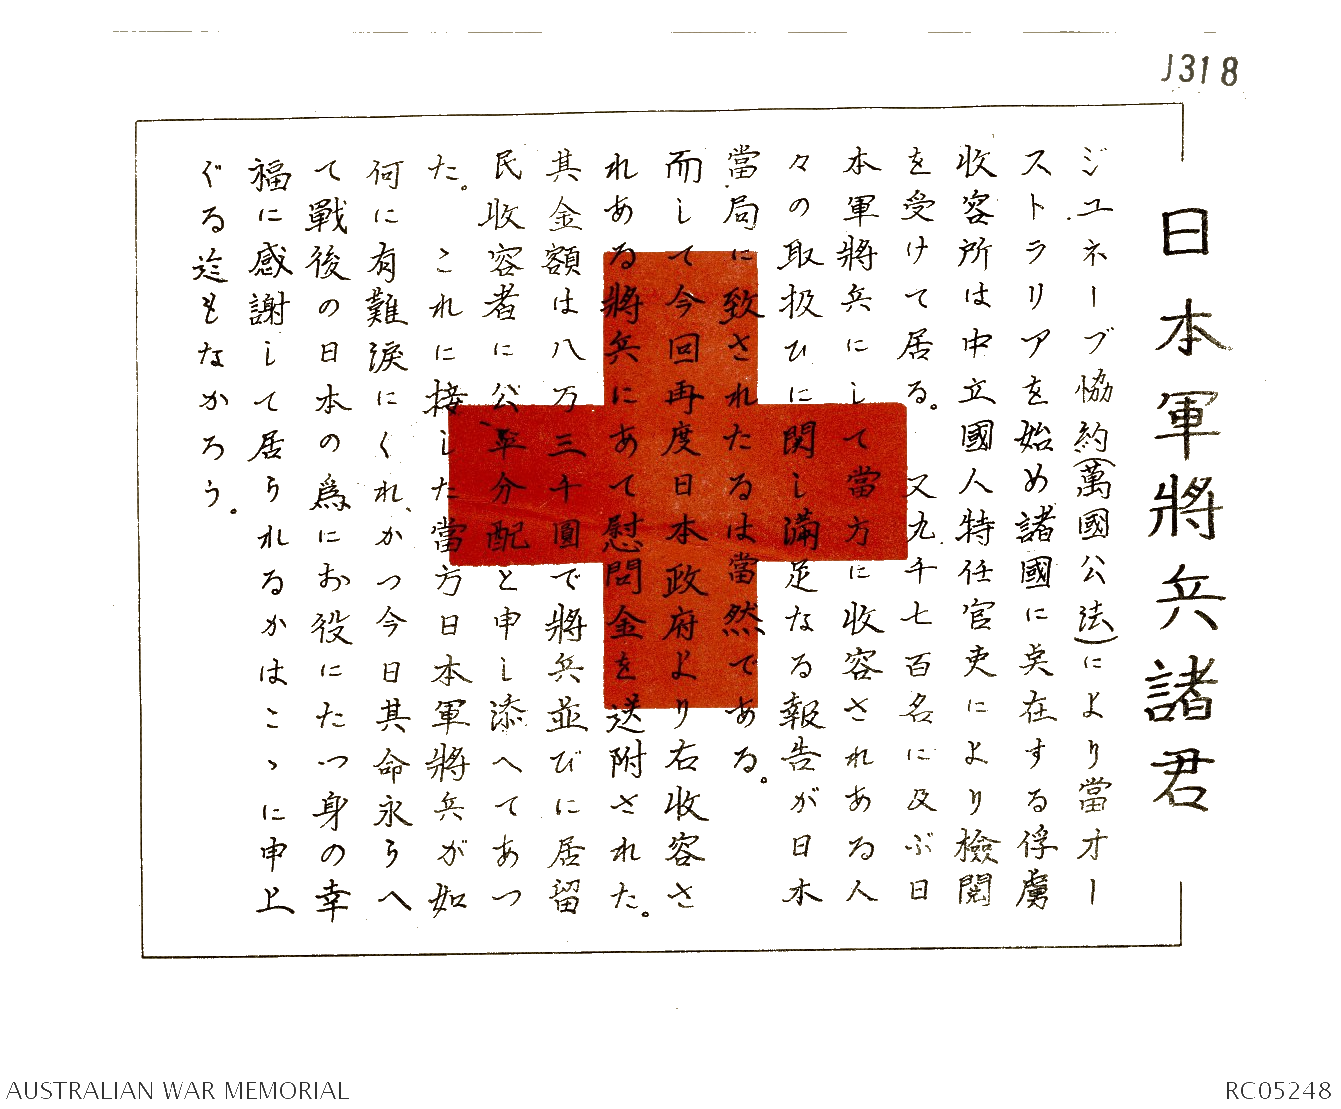 J318
日本軍將兵諸君
ジユネーブ恊約(萬國公法)により當オー
ストラリアを始め諸國に矣在する俘虜
收容所は中立國人特任官吏により檢閲
を受けて居る。 又九千七百名に及ぶ日
本軍將兵にして當方に收容されある人
々の取扱ひに関し滿足なる報告が日本
當局に致されたるは當然である。
而して今回再度日本政府より右收容さ
れある將兵にあて慰問金を送附された。
其金額は八万三千圓で將兵並びに居留
民收容者に公平分配と申し添へてあつ
た。 これに接した當方日本軍將兵が如
何に有難淚にくれ、かつ今日其命永らへ
て戰後の日本の為にお役にたつ身の幸
福に感謝して居られるかはこゝに申上
ぐる迄もなかろう。
AUSTRALIAN WAR MEMORIAL
RC05248